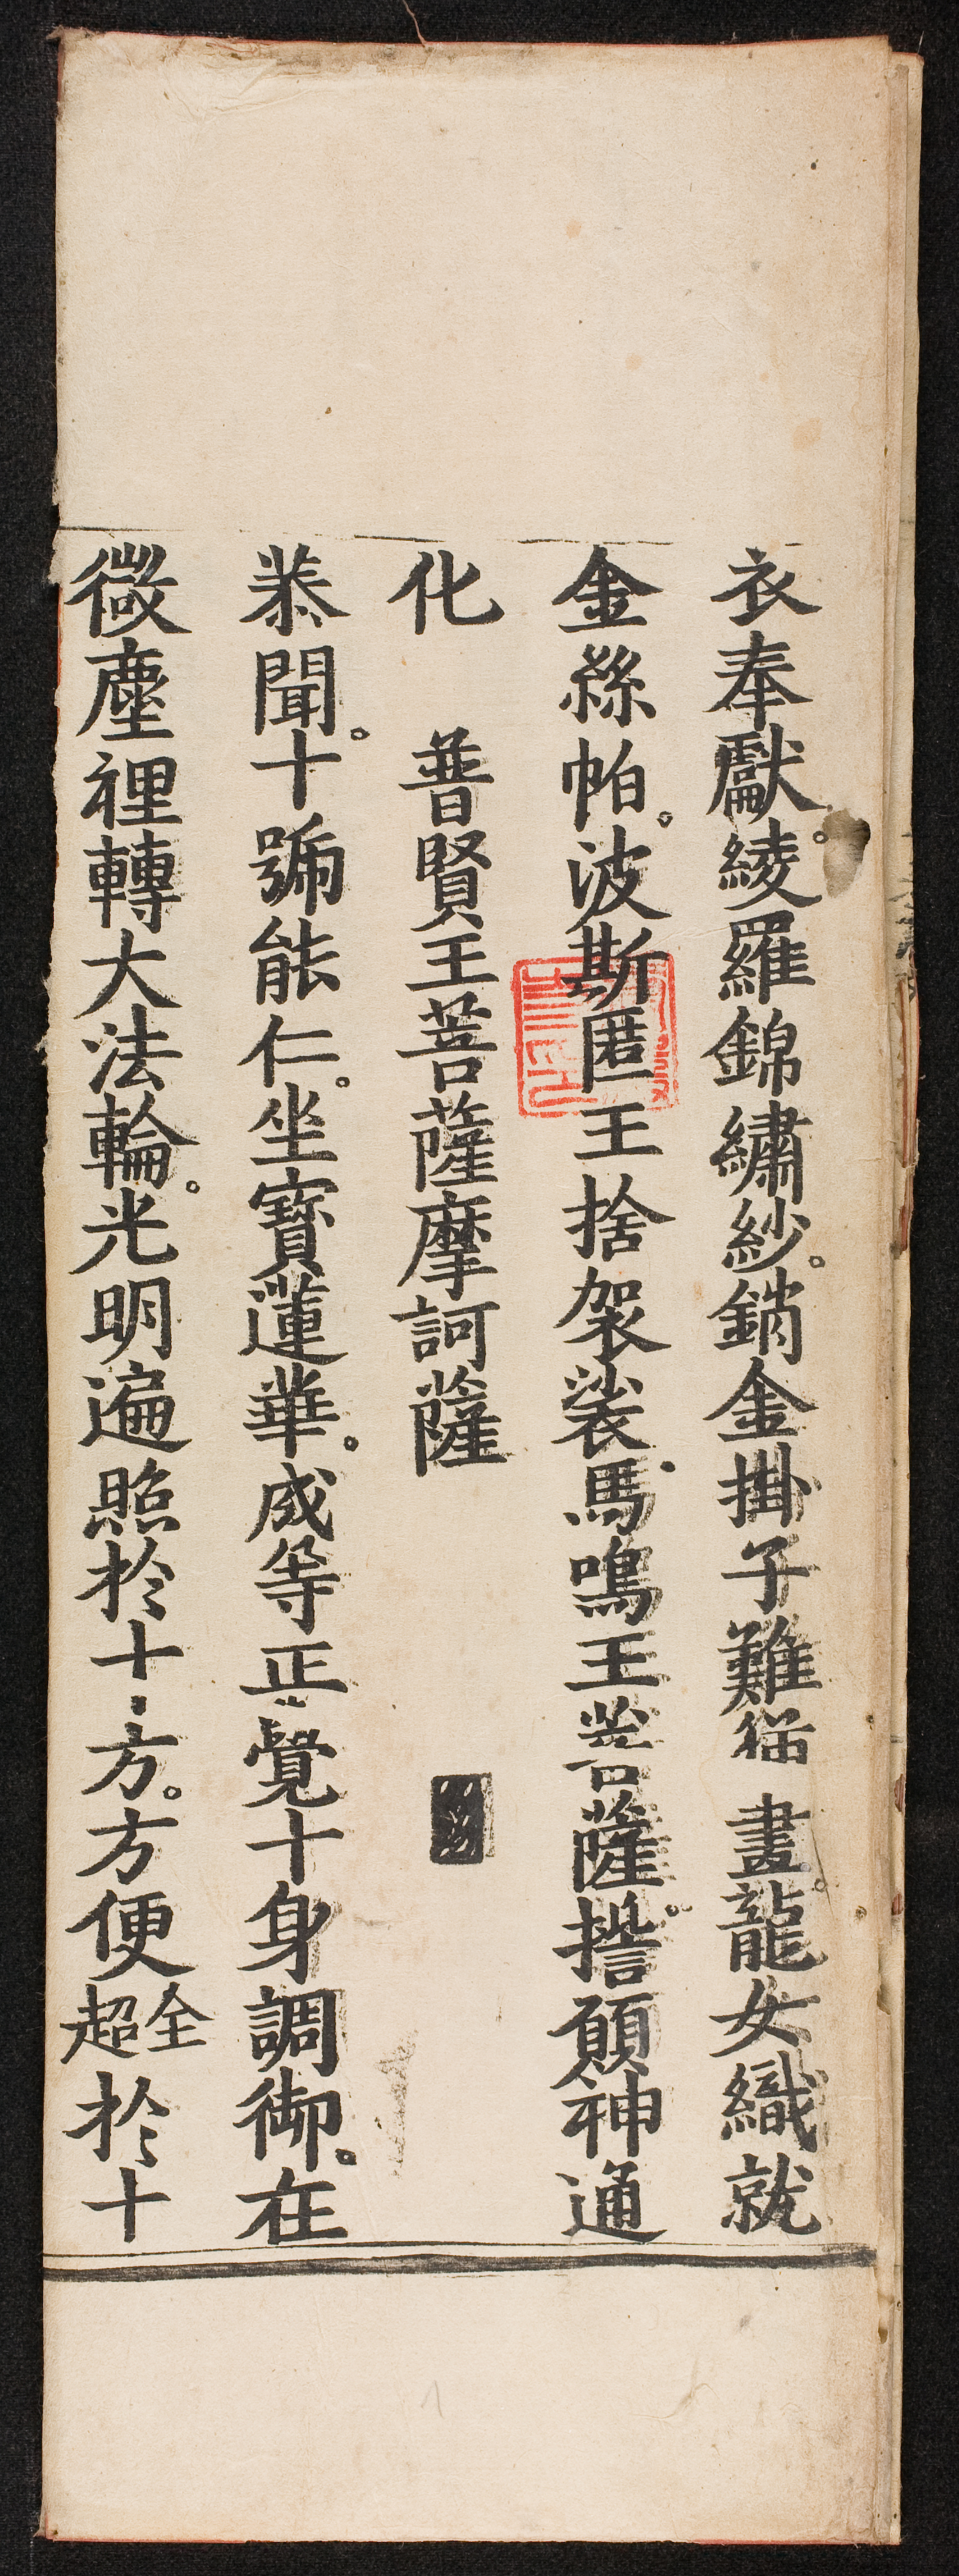 衣奉獻。綾羅錦繡紗。銷金掛子難描畫。龍女織就
金絲帕。波斯匿王捨袈裟。馬鳴王菩薩。誓願神通
化　普賢王菩薩摩訶薩
恭聞。十號能仁。坐寶蓮華。成等正覺十身調御。在
微塵裡轉大法輪。光明遍照於十方。方便全超於十